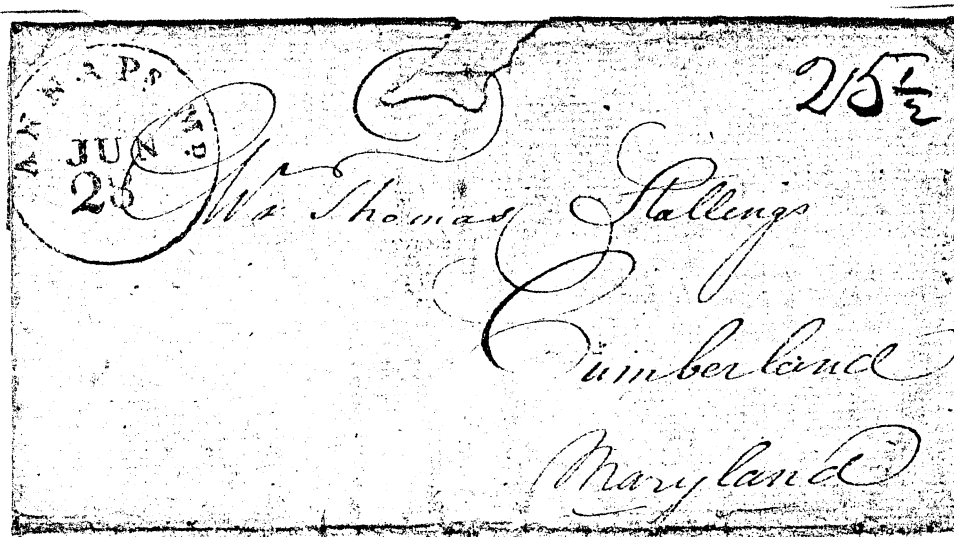 ANNAPS. MD.
JUN
25
25 1/2
Mr Thomas Stallings
Cumberland
Maryland